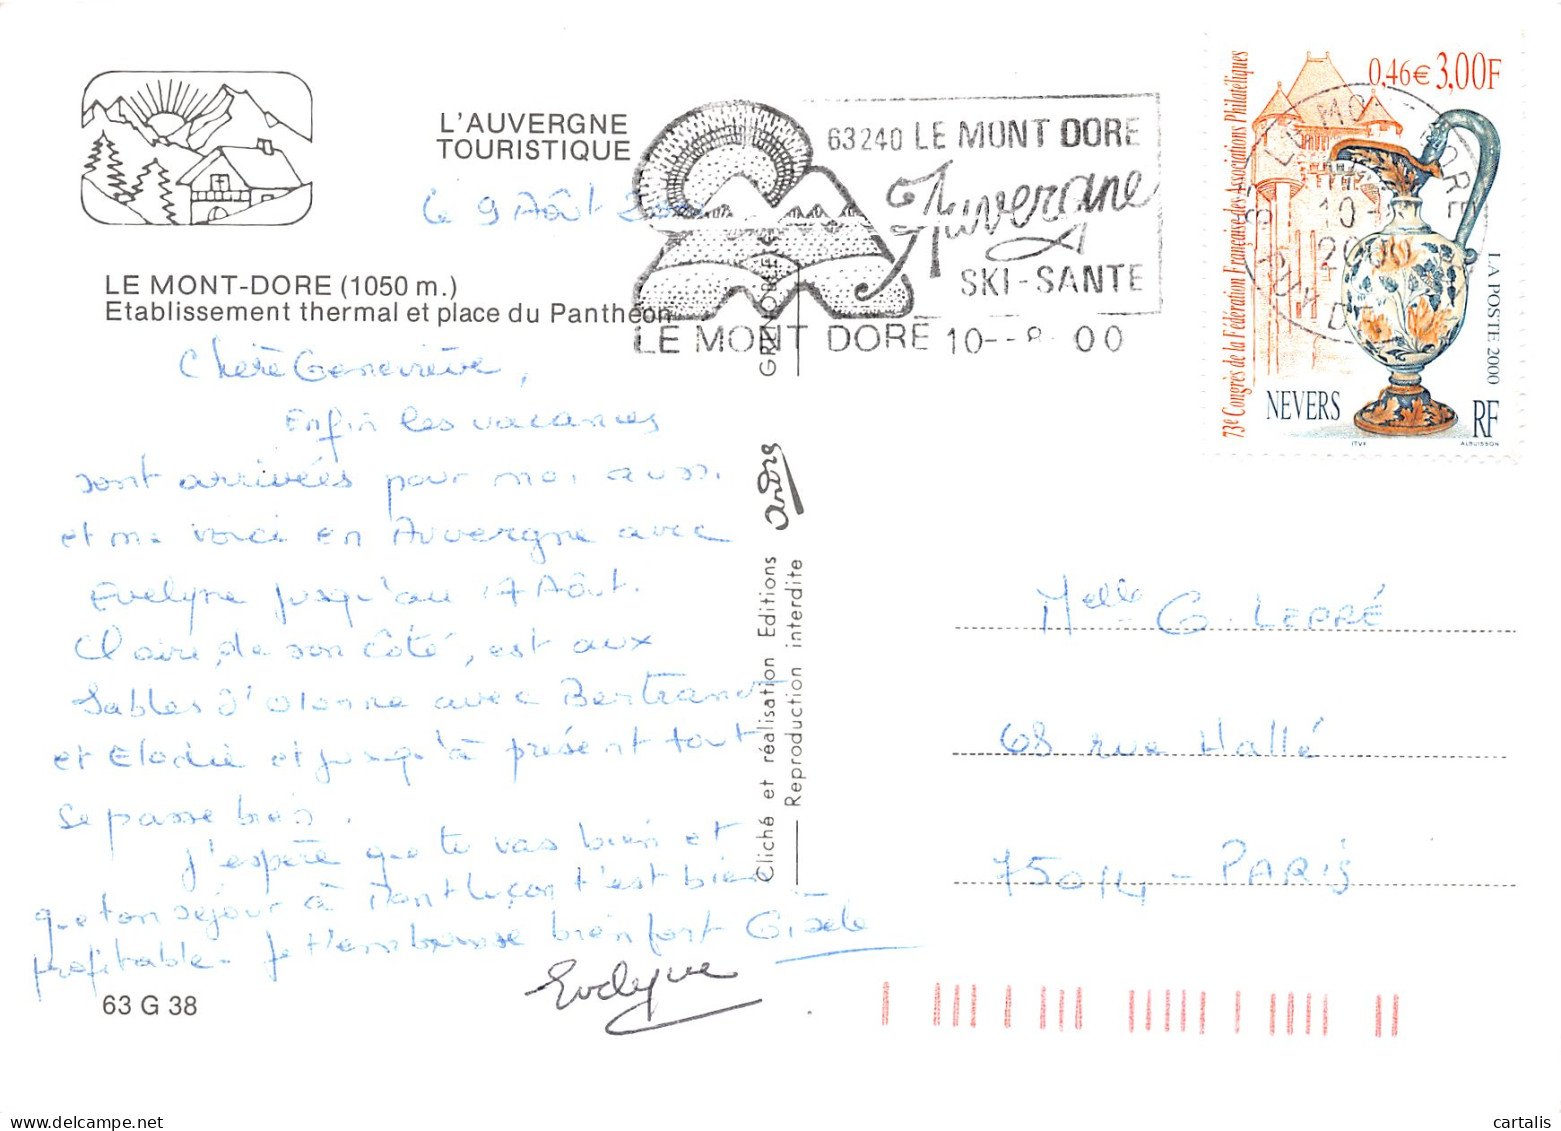 L'AUVERGNE
TOURISTIQUE
Le 9 Août
LE MONT-DORE (1050 m.)
Etablissement thermal et place du Panthéon
Chère Geneviève,
Enfin les vacances
sont arrivées pour moi aussi
et me voici en Auvergne avec
Evelyne jusqu'au 17 Août.
Claire, de son côté, est aux
Sables d'Olonne avec Bertrand
et Elodie et jusqu'à présent tout
se passe bien.
J'espère que tu vas bien et
que ton séjour à Montluçon t'est bien
profitable. Je t'embrasse bien fort Gisèle
Evelyne
63 G 38
63240 LE MONT DORE
Auvergne
SKI-SANTE
LE MONT DORE 10--8- 00
GRENOBLE
andré
Cliché et réalisation Editions
Reproduction interdite
0,46€ 3,00F
73e Congrès de la Fédération Française des Associations Philatéliques
LE MONT DORE
10-8
2000
PUY DE
LA POSTE 2000
NEVERS
RF
ITVF
ALBUISSON
Melle G. LEPRÉ
68 rue Hallé
75014 - PARIS
www.cartalis.com
cartalis